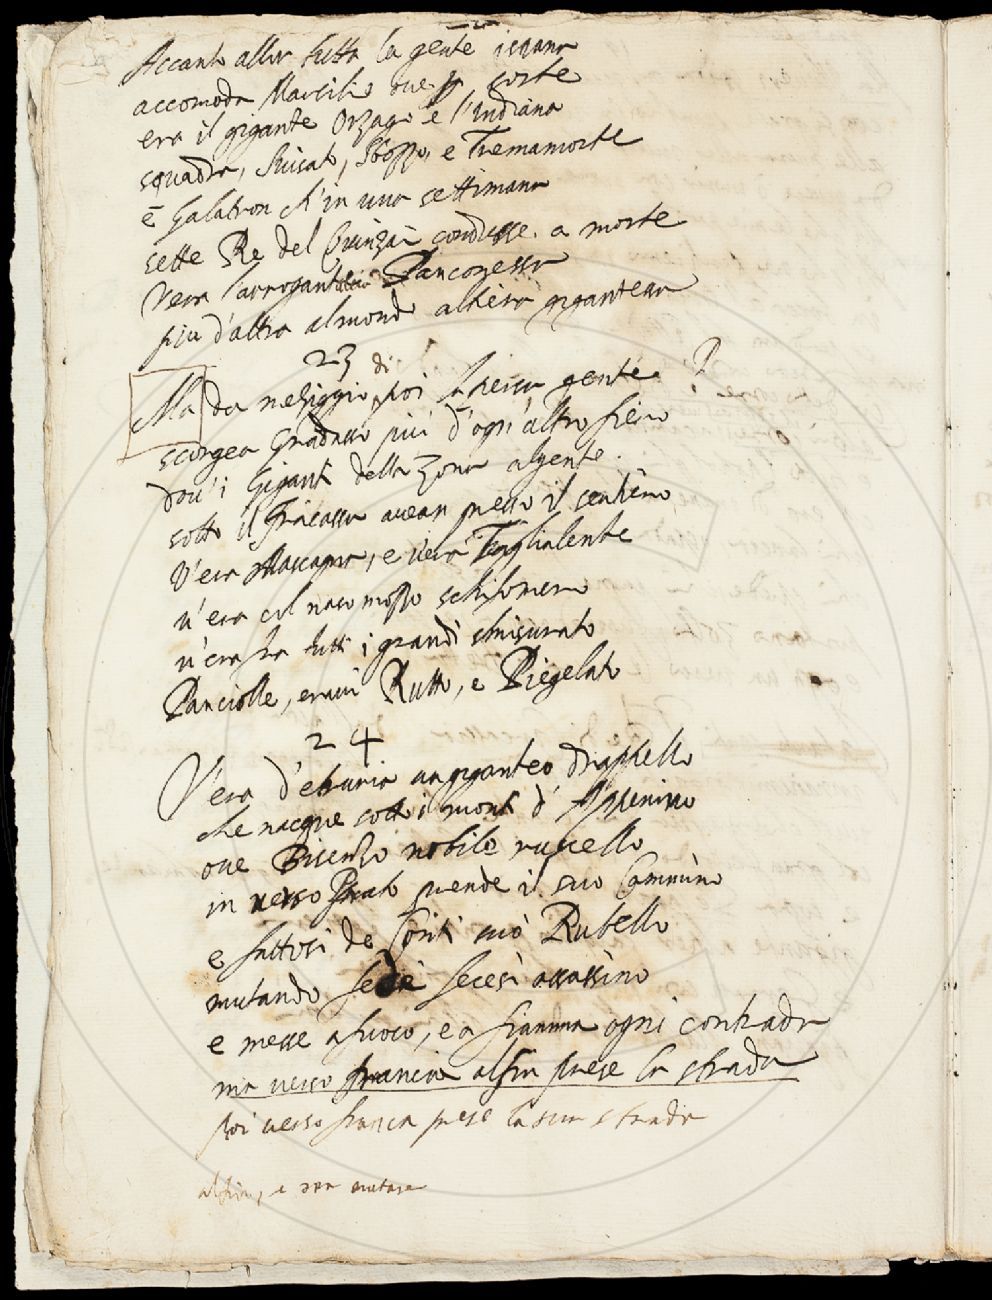 Accanto allor tutta la gente ispana
accomoda Marsilio ove
era il gigante Orzago e l'Indiana
squadra, Suicato, Sbozzo, e Tremamorte
e Galatron ch'in una settimana
sette Re del condusse a morte
V'era l'arrogante Panconessa
piu d'altra al mondo altiera gigantessa
23
Ma da meriggio di poi gente
scorgea Gradasso più d'ogn'altro fiero
dov'i Giganti della Zona algente
sotto il fracassa avean preso il sentiero
V'era Mascapra, e v'era Taglialente
v'era col naso mozzo
v'era fra tutti i grandi smisurato
Panciolle, eravi Rutto, e Piegelato
24
V'era d'etruria un giganteo drappello
che nacque sotto i monti d'Appenino
ove Bisenzio nobile ruscello
in verso Prato prende il suo Cammino
e fattosi de Conti suo Rubello
mutando fede fecesi assassino
e messe a fuoco, e a fiamma ogni contrada
ma verso francia alfin prese la strada
poi verso franca prese la sua strada
alfin, e non mutare